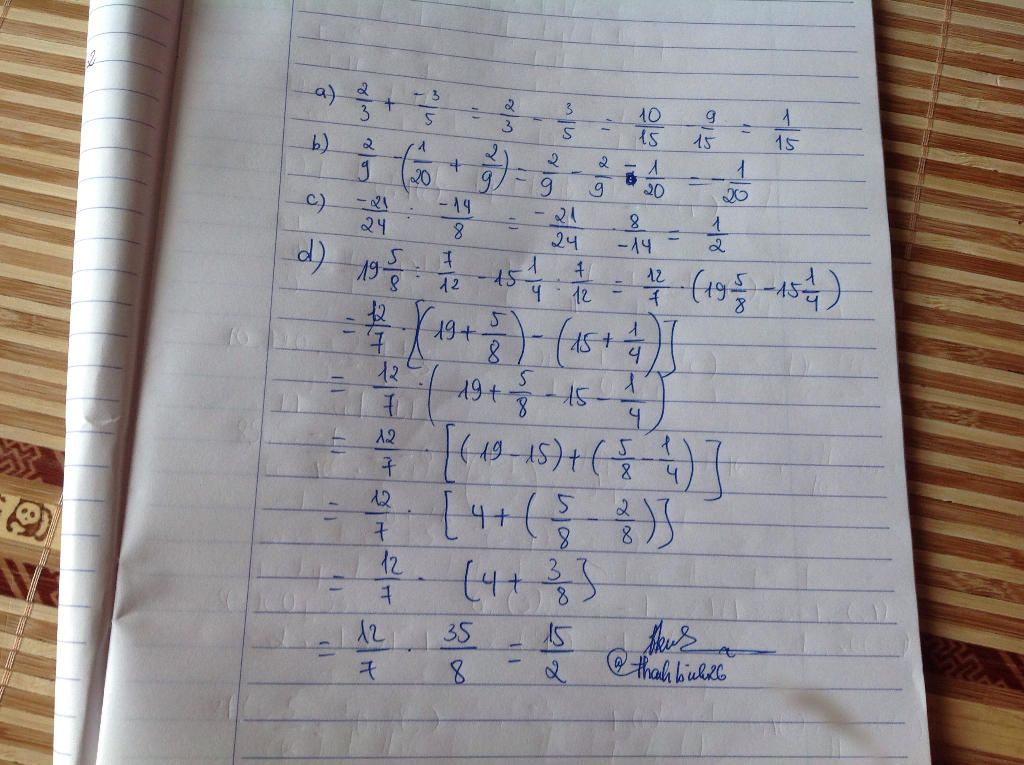 a) 2/3 + -3/5 = 2/3 - 3/5 = 10/15 - 9/15 = 1/15
b) 2/9 - (1/20 + 2/9) = 2/9 - 2/9 - 1/20 = - 1/20
c) -21/24 : -14/8 = -21/24 . 8/-14 = 1/2
d) 19 5/8 : 7/12 - 15 1/4 : 7/12 = 12/7 . (19 5/8 - 15 1/4)
= 12/7 . [(19 + 5/8) - (15 + 1/4)]
= 12/7 . (19 + 5/8 - 15 - 1/4)
= 12/7 . [(19 - 15) + (5/8 - 1/4)]
= 12/7 . [4 + (5/8 - 2/8)]
= 12/7 . [4 + 3/8]
= 12/7 . 35/8 = 15/2
@thanhbinh26